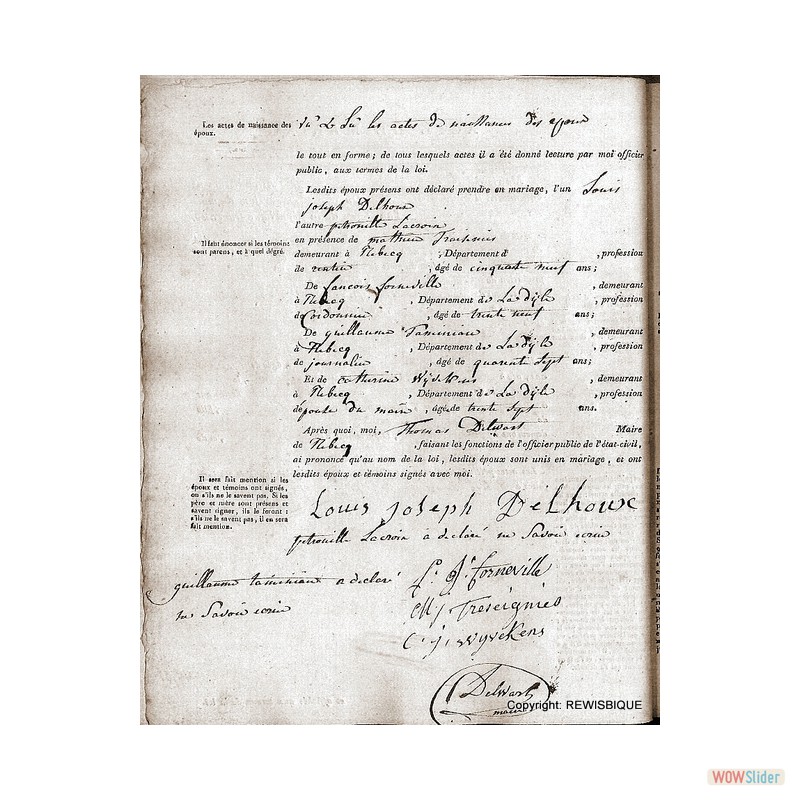 Les actes de naissance des
époux.
Vu & Lu les actes de naissances des epoux
le tout en forme; de tous lesquels actes il a été donné lecture par moi officier
public, aux termes de la loi.
Lesdits époux présens ont déclaré prendre en mariage, l'un Louis
joseph Delhoux
l'autre petronille Lacroix
Il faut énoncer si les témoins
sont parens, et à quel dégré.
en présence de mathieu
demeurant à Rebecq, Département d, profession
de rentier, âgé de cinquante neuf ans;
De françois forneville, demeurant
à Rebecq, Département de La dyle, profession
de Cordonnier, âgé de trente neuf ans;
De guillaume Taminiaux, demeurant
à Rebecq, Département de La dyle, profession
de journalier, âgé de quarente sept ans;
Et de catherine Wyvekens, demeurant
à Rebecq, Département de La dyle, profession
d'épouse du maire, âgée de trente sept ans.
Après quoi, moi, Thomas Delwart Maire
de Rebecq, faisant les fonctions de l'officier public de l'état-civil,
ai prononcé qu'au nom de la loi, lesdits époux sont unis en mariage, et ont
lesdits époux et témoins signés avec moi.
Il sera fait mention si les
époux et témoins ont signés,
ou s'ils ne le savent pas. Si les
père et mère sont présens et
savent signer, ils le feront:
s'ils ne le savent pas, il en sera
fait mention.
Louis Joseph Delhoux
petronille Lacroix a déclaré ne Savoir ecrire
guillaume taminiaux a declaré
ne Savoir ecrire
forneville
Treseignies
C j wyvekens
Delwart
maire
Copyright: REWISBIQUE
WOWSlider